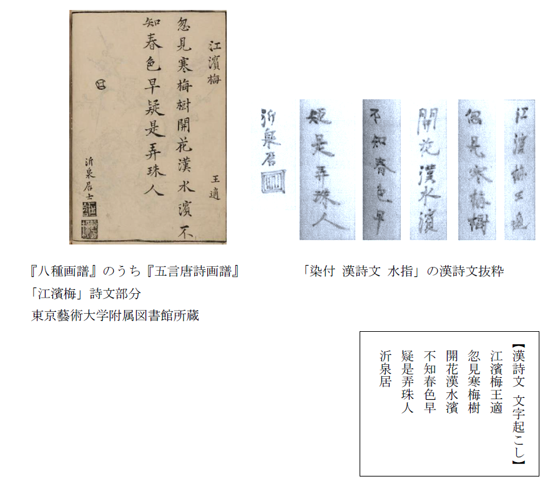 江濱梅
王適
忽見寒梅樹開花漢水濱不
知春色早疑是弄珠人
沂泉居士
江濱梅王適
忽見寒梅樹
開花漢水濱
不知春色早
疑是弄珠人
沂泉居
『八種画譜』のうち『五言唐詩画譜』
「江濱梅」詩文部分
東京藝術大学附属図書館所蔵
「染付 漢詩文 水指」の漢詩文抜粋
【漢詩文 文字起こし】
江濱梅王適
忽見寒梅樹
開花漢水濱
不知春色早
疑是弄珠人
沂泉居